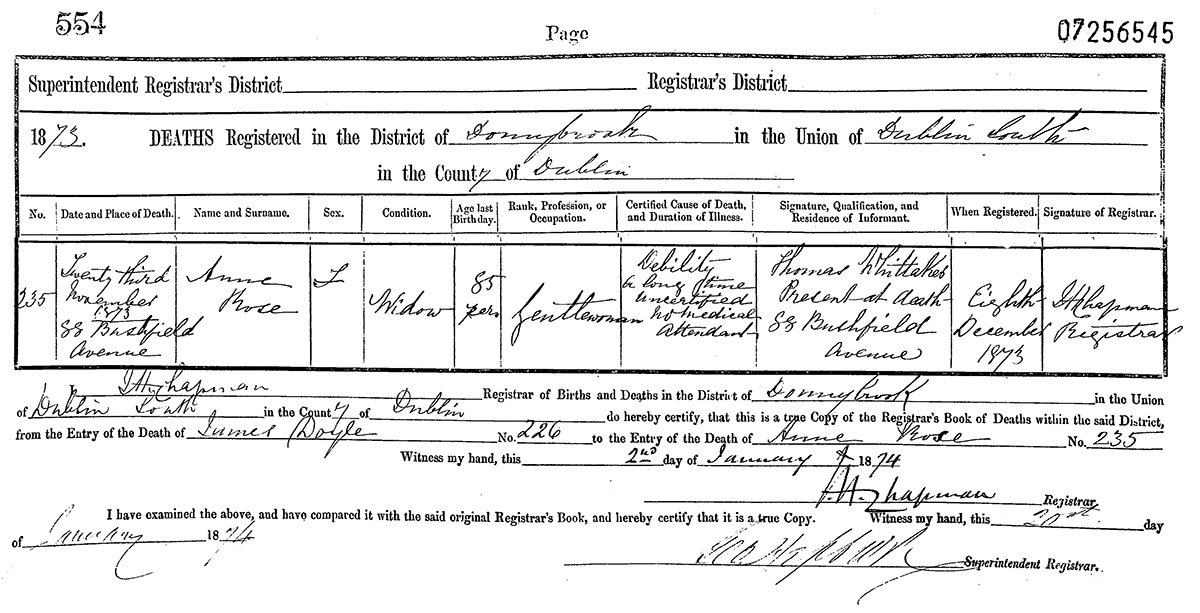 554
Page
07256545
Superintendent Registrar's District
Registrar's District
1873. DEATHS Registered in the District of Donnybrook in the Union of Dublin South
in the County of Dublin
No. Date and Place of Death. Name and Surname. Sex. Condition. Age last Birthday. Rank, Profession, or Occupation. Certified Cause of Death, and Duration of Illness. Signature, Qualification, and Residence of Informant. When Registered. Signature of Registrar.
235
Twenty third
November
1873
Bushfield
Avenue
Anne
Rose
F
Widow
85
years
Gentlewoman
Debility
a long time
uncertified
no medical
Attendant
Thomas Whittaker
Present at death
Bushfield
Avenue
Eighth
December
1873
Chapman
Registrar
I Chapman Registrar of Births and Deaths in the District of Donnybrook in the Union
of Dublin South in the County of Dublin do hereby certify, that this is a true Copy of the Registrar's Book of Deaths within the said District,
from the Entry of the Death of James Doyle No. 226 to the Entry of the Death of Anne Rose No. 235
Witness my hand, this 2nd day of January 1874
Chapman Registrar.
I have examined the above, and have compared it with the said original Registrar's Book, and hereby certify that it is a true Copy. Witness my hand, this day
of January 1874
Superintendent Registrar.